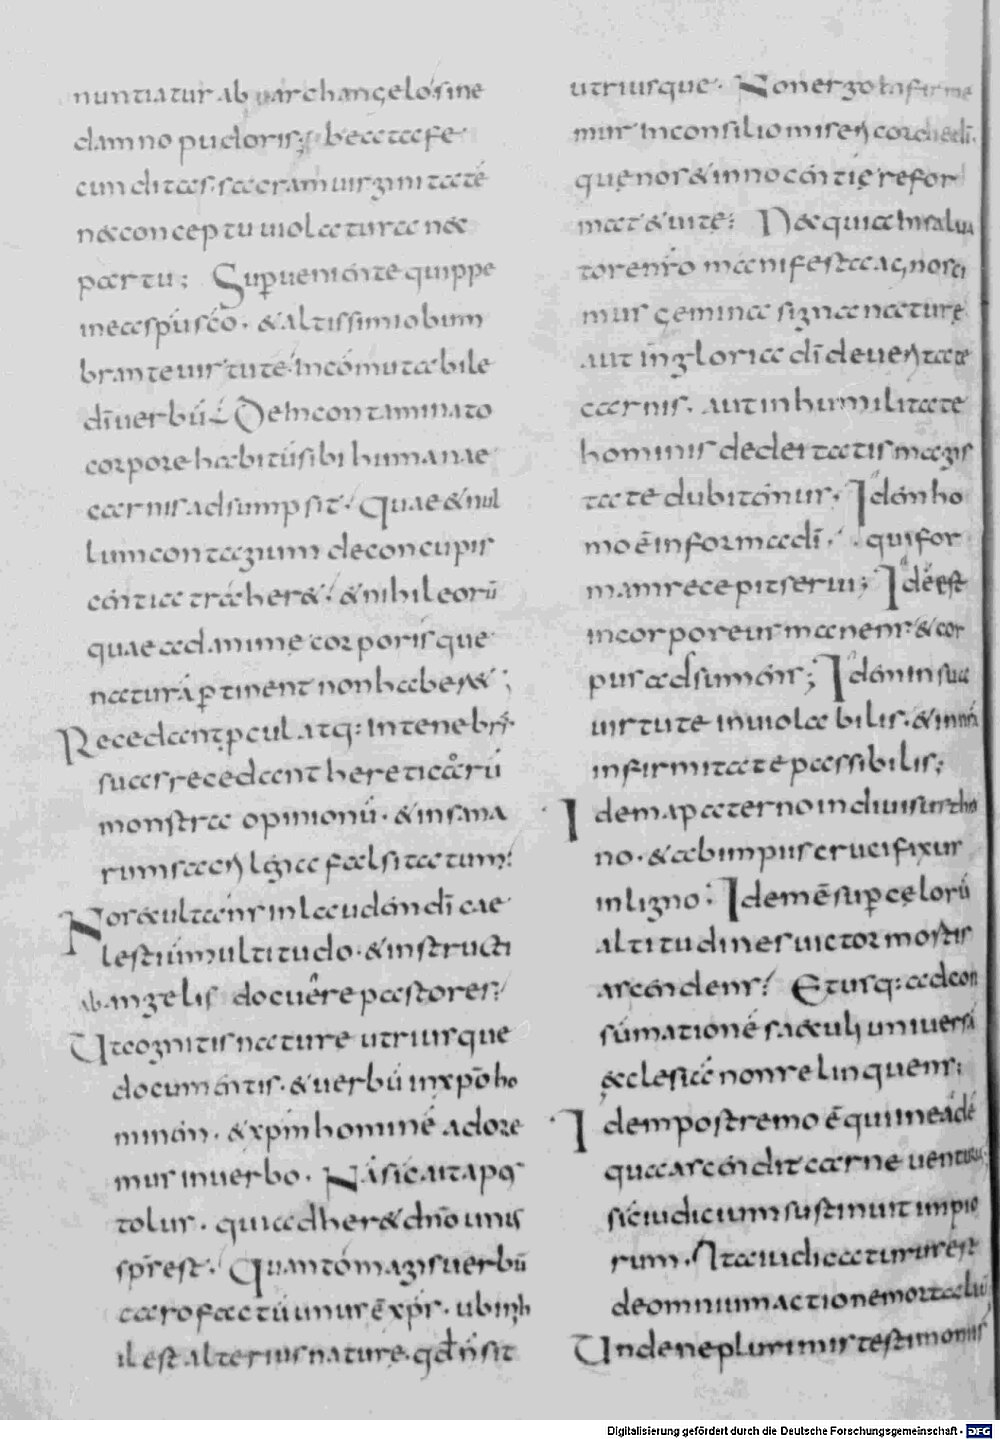 nuntiatur ab archangelo sine
damno pudoris; beata fe
cunditas. sacram uirginitaté
n& conceptu uiolatura n&
partu; Superueniente quippe
in eā sp̄u s̄cō. & altissimi obum
brante uirtute. incōmutabile
dī uerbū. De incontaminato
corpore habitū sibi humanae
carnis adsumpsit. Quae & nul
lum contagium de concupis
centia traher&. & nihil eorū
quae ad animę corporisque
naturā ꝑtinent non haber&;
Recedant ꝓcul atq: in tenebris
suas recedant hereticorū
monstra opinionū. & insana
rum sacrilegia falsitatum.
Nos exultantis in laudem dī cae
lestiū multitudo. & instructi
ab angelis docuere pastores.
Ut cognitis nature utriusque
documentis. & uerbū in xp̄o ho
minem. & xp̄m hominē adore
mur in uerbo. Nā sicut apos
tolus. qui adher& dn̄o unus
sp̄s est. Quanto magis uerbū
caro factū unus ē xp̄s. ubi nih
il est alterius nature. qd n̄ sit
utriusque. Non ergo infirme
mur in consilio misericordie dī.
quę nos & innocentię refor
mat & uite. N& quia in salua
tore nr̄o manifesta agnosci
mus geminę signa nature
aut in gloria dī de ueritate
carnis. aut in humilitate
hominis de deitatis maies
tate dubitemus. Idem ho
mo ē in forma dī. qui for
mam recepit serui; Idē est
incorporeus manens. & cor
pus adsumens; Idem in sua
uirtute inuiolabilis. & in nr̄a
infirmitate passibilis;
Idem a paterno indiuisus thro
no. & ab impiis crucifixus
in ligno. Idem ē suꝑ cęlorū
altitudines uictor mortis
ascendens. Et usq: ad con
sūmationē saeculi uniuersā
ęcclesiā non relinquens;
Idem postremo ē qui in eadē
qua ascendit carne uenturus.
sic iudicium sustinuit impio
rum. Ita iudicaturus est
de omnium actione mortaliū
Unde ne plurimis testimoniis